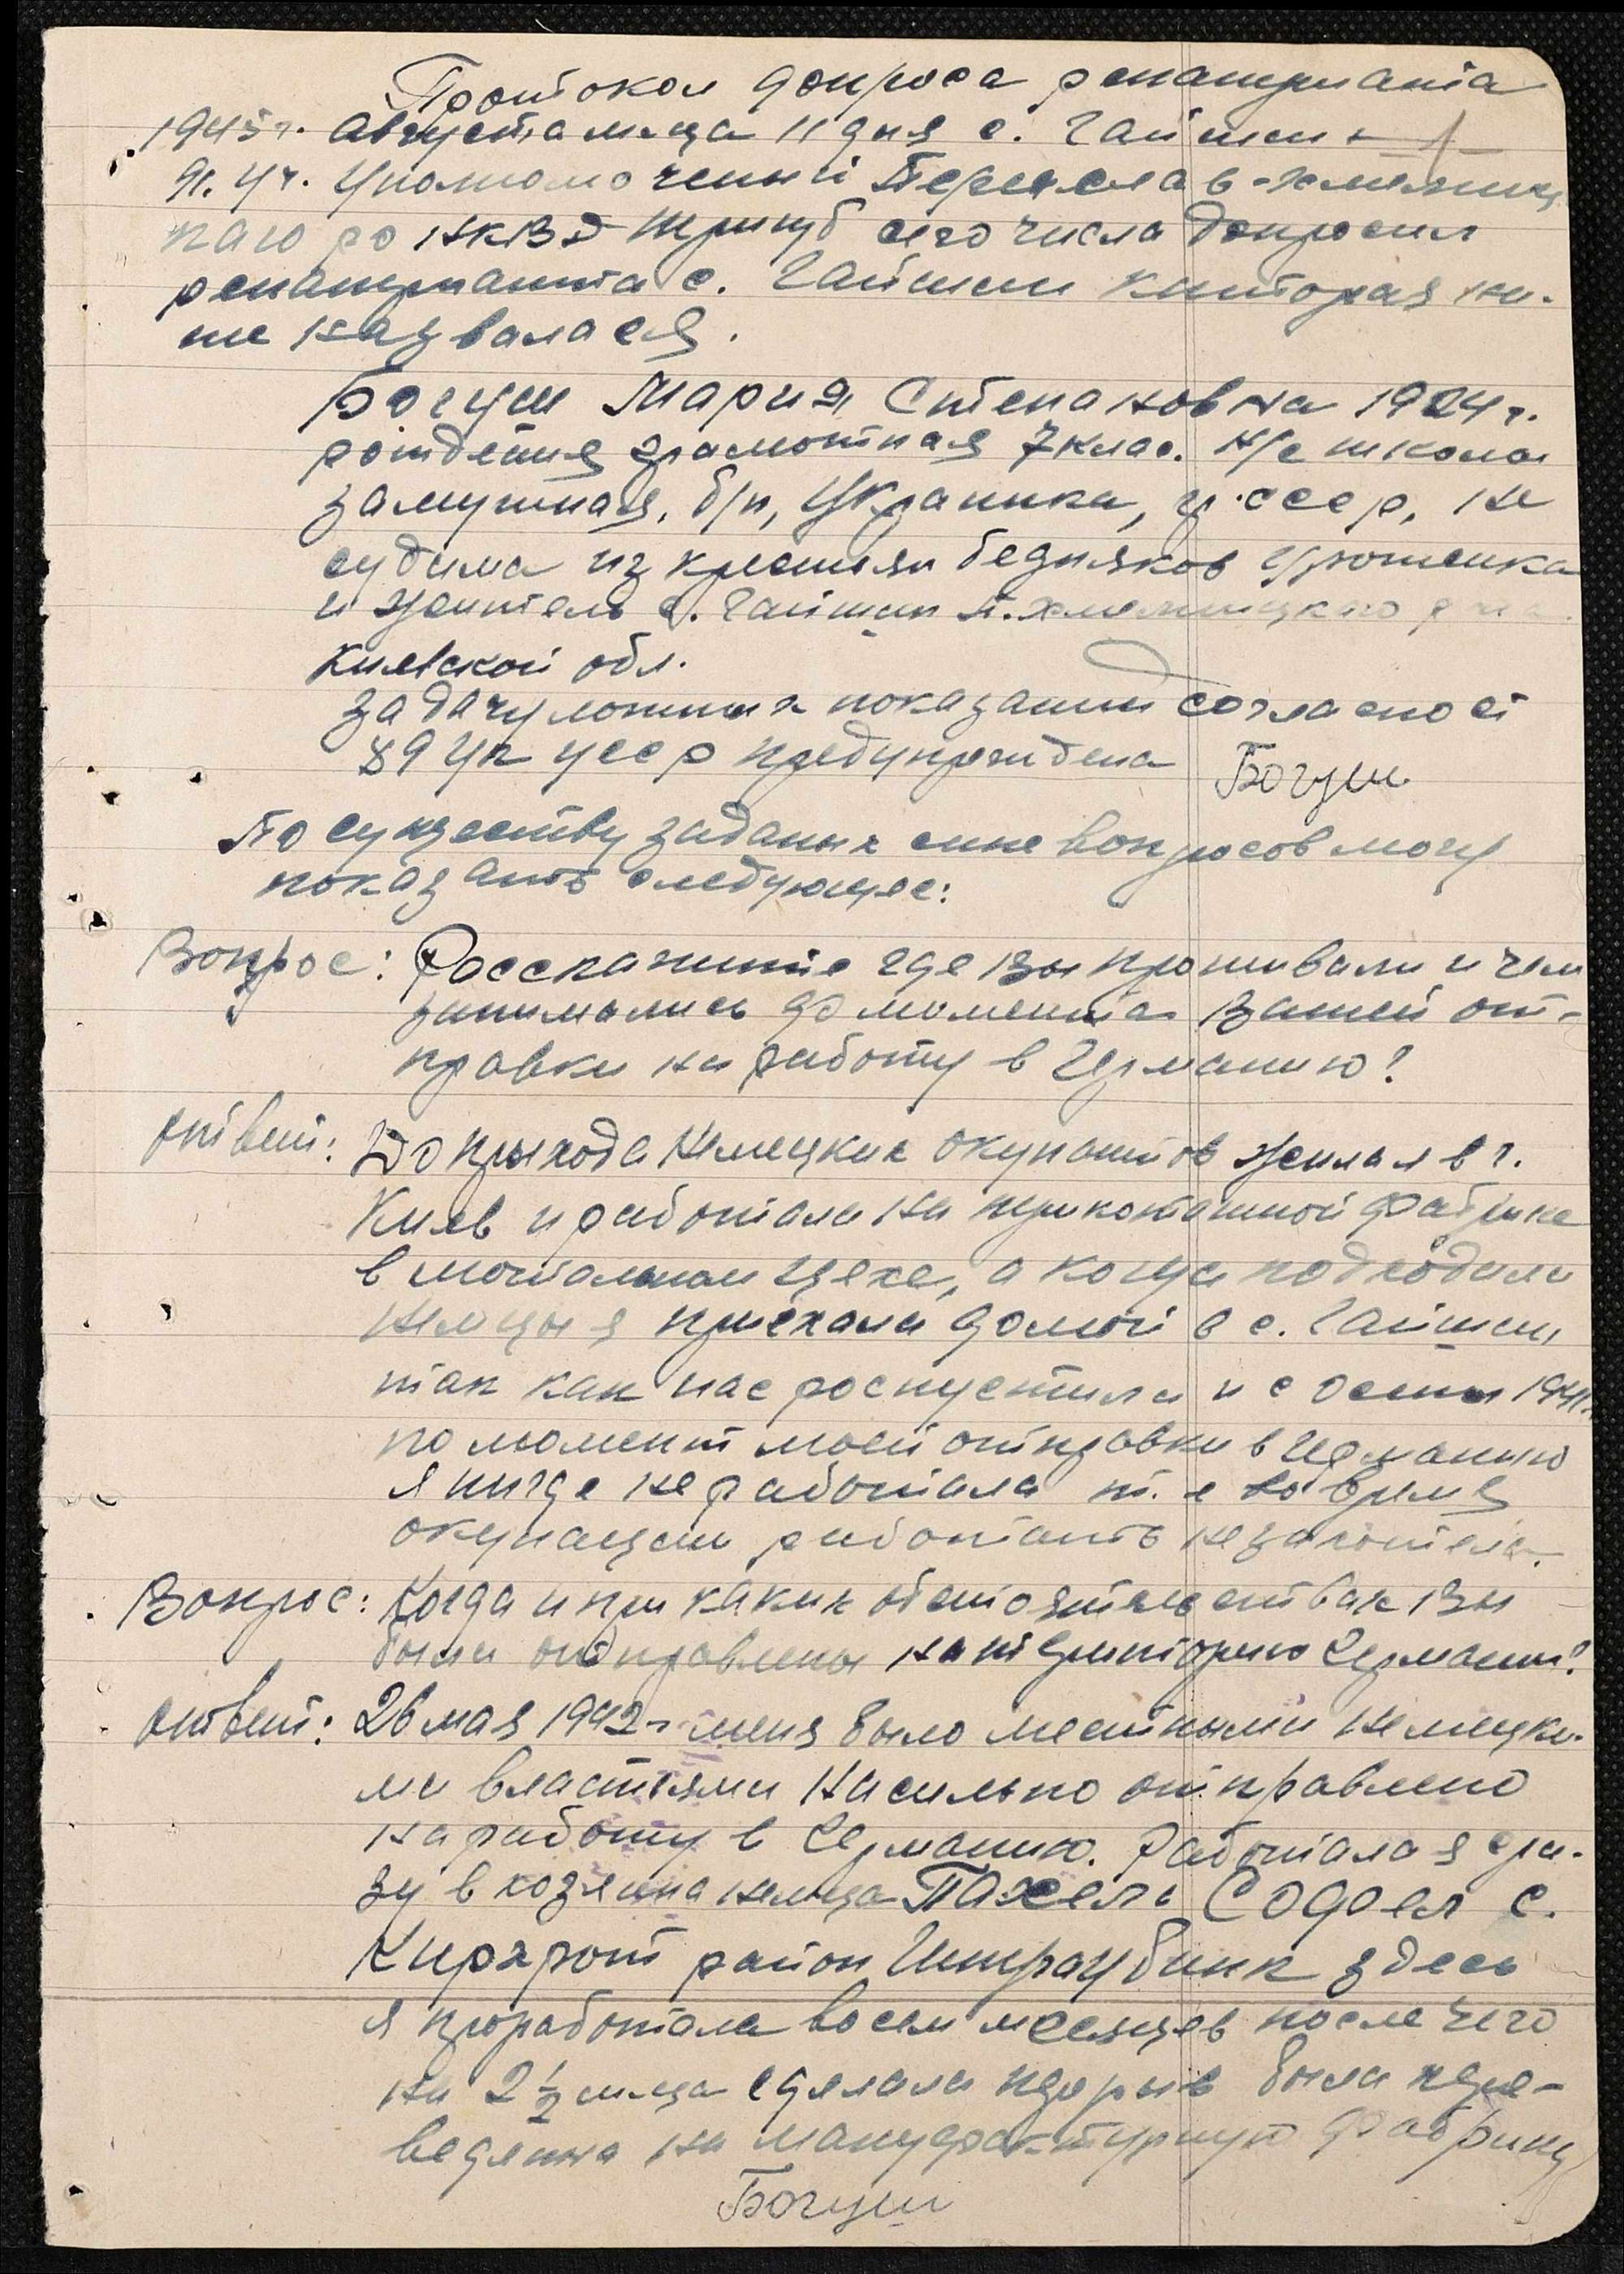 Протокол допроса репатрианта
1945 г. августа м-ца 11 дня с. Гайшин
Я. уч. Уполномоченный Переяслав-Хмельниц
кого ро НКВД Тригуб сего числа допросил
репатрианта с. Гайшин которая ни-
же назвалася.
Богуш Мария Степановна 1924 г.
рождения грамотная 7 клас. н/с школы
замужная, б/п, Украинка, гр. ссср, не
судима из крестьян бедняков Уроженка
и житель с. Гайшин П. Хмельницкого р-на
Киевской обл.
За дачу ложных показаний согласно ст
89 УК усср предупреждена Богуш
По существу заданых мне вопросов могу
показать следующее:
Вопрос: Росскажите где Вы проживали и чем
занимались до момента Вашей от-
правки на работу в Германию?
Ответ: До прыхода Немецких окупантов жила я в г.
Киев и работала на трикотажной фабрике
в мотальном цехе, а когда подходили
немцы я приехала домой в с. Гайшин
так как нас роспустили и с осени 1941 г.
по момент моей отправки в Германию
я нигде не работала т. е во время
окупации работать не захотела.
Вопрос: Когда и при каких обстоятельствах Вы
были отправлены на територию Германии?
Ответ: 26 мая 1942 г меня было местными немецки-
ми властями насильно отправлено
на работу в Германию. Работала я сра-
зу в хозяина немца Пахель Содоел с.
Кирхрот район Штраубинк здесь
я проработала восем месяцев после чего
на 2½ м-ца сделала перерыв была пере-
ведена на мануфактурную фабрику
Богуш